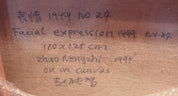 表情 1999 No 24
Facial expression 1999 No 24
110 x 135 cm
Zhao Nengzhi 1999
oil on canvas
赵能智